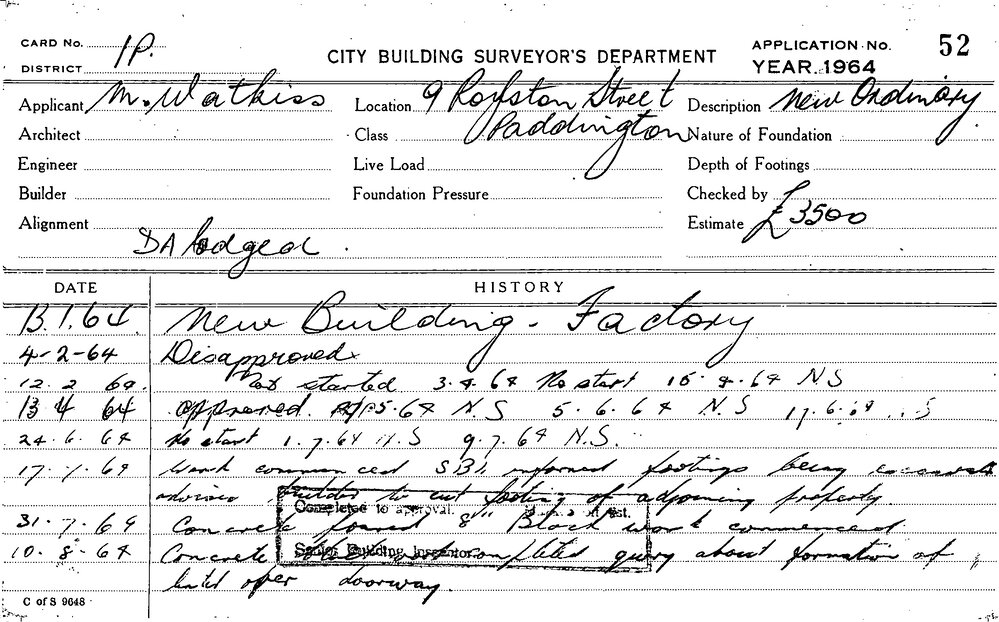 CARD No. 1P. CITY BUILDING SURVEYOR'S DEPARTMENT APPLICATION No. 52
DISTRICT YEAR 1964
Applicant M. Watkiss Location 9 Royston Street Description New Ordinary
Architect Class Paddington Nature of Foundation
Engineer Live Load Depth of Footings
Builder Foundation Pressure Checked by
Alignment Estimate £3500
DA lodged.
DATE HISTORY
13.1.64 New Building - Factory
4-2-64 Disapproved
12.2 64. Not started 3.4.64 No start 15.4.64 NS
13 4 64 approved. 5.64 N.S 5.6.64 N.S 17.6.64 .. S
24.6.64 No start 1.7.64 N.S 9.7.64 N.S.
17.7.64 Work commenced informed footings being
builder to cut footing of adjoining property
31.7.64 Concrete poured 8" Block work commenced
10.8.64 Concrete query about formation of
over doorway.
Completed to approval.
Senior Building Inspector
C of S 9648